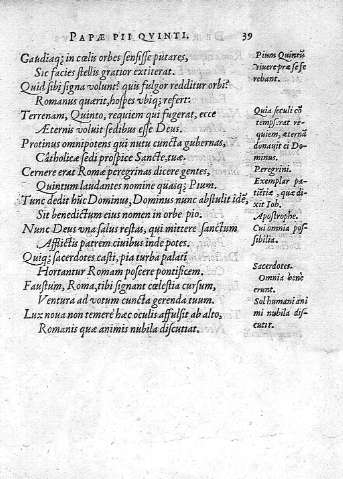 PAPÆ PII QVINTI. 39
Gaudiaq; in cælis orbes sensisse putares,
Sic facies stellis gratior extiterat.
Quid sibi signa volunt? quis fulgor redditur orbi?
Romanus quærit, hospes vbiq; refert:
Terrenam, Quinto, requiem qui fugerat, ecce
Æternis voluit sedibus esse Deus.
Protinus omnipotens qui nutu cuncta gubernas,
Catholicæ sedi prospice Sancte, tuæ.
Cernere erat Romæ peregrinas dicere gentes,
Quintum laudantes nomine quæq; Pium.
Tunc dedit huc Dominus, Dominus nunc abstulit idē,
Sit benedictum eius nomen in orbe pio.
Nunc Deus vna salus restas, qui mittere sanctum
Afflictis patrem ciuibus inde potes.
Quiq; sacerdotes casti, pia turba palati
Hortantur Romam poscere pontificem.
Faustum, Roma, tibi signant cælestia cursum,
Ventura ad votum cuncta gerenda tuum.
Lux noua non temerè hæc oculis affulsit ab alto,
Romanis quæ animis nubila discutiat.
Pium Quintū
viuere præ se fe
rebant.
Quia seculi cō
temps. rat re-
quiem, æternā
donauit ei Do-
minus.
Peregrini.
Exemplar pa-
tiētiæ, quæ di-
xit Iob.
Apostrophe.
Cui omnia pos-
sibilia.
Sacerdotes.
Omnia bene
erunt.
Sol humani ani
mi nubila dis-
cutit.